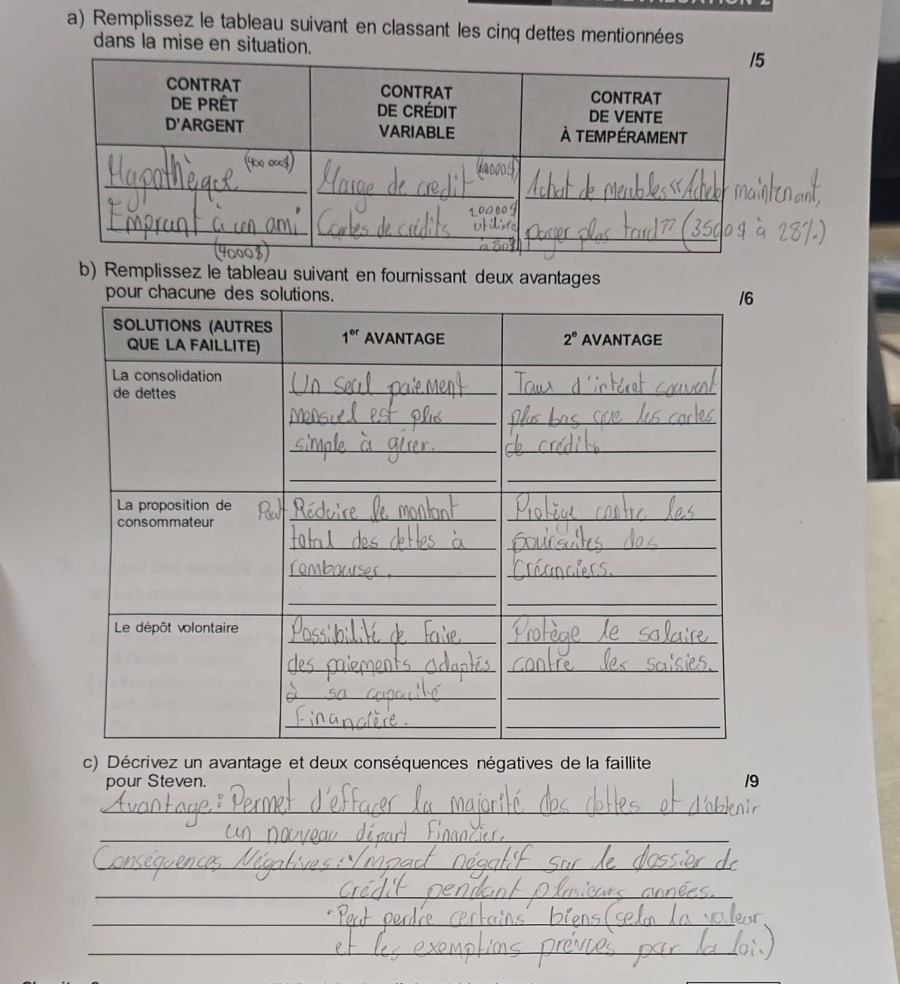 a) Remplissez le tableau suivant en classant les cinq dettes mentionnées
dans la mise en situation.
/5
CONTRAT
DE PRÊT
D'ARGENT
CONTRAT
DE CRÉDIT
VARIABLE
CONTRAT
DE VENTE
À TEMPÉRAMENT
Hypothèque (400 000$)
Emprunt à un ami
(4000$)
Marge de credit
Cartes de crédits 10000$
utilisée
à 80%
Achat de meubles << Acheter maintenant,
payer plus tard >> (3500$ à 28%)
b) Remplissez le tableau suivant en fournissant deux avantages
pour chacune des solutions.
/6
SOLUTIONS (AUTRES
QUE LA FAILLITE)
1er AVANTAGE
2e AVANTAGE
La consolidation
de dettes
Un seul paiement
mensuel est plus
simple à gérer.
Taux d'intéret souvent
plus bas que les cartes
de crédits
La proposition de
consommateur
Peut Réduire le montant
total des dettes à
rembourser.
Protège contre les
poursuites des
créanciers.
Le dépôt volontaire
Possibilité de faire
des paiements adaptés
à sa capacité
Financière.
Protège le salaire
contre les saisies.
c) Décrivez un avantage et deux conséquences négatives de la faillite
pour Steven.
/9
Avantage: Permet d'effacer la majorité des dettes et d'obtenir
un nouveau départ Financier.
Conséquences Négatives: • Impact négatif sur le dossier de
crédit pendant plusieurs années.
• Peut perdre certains biens (selon la valeur
et les exemptions prévues par la loi.)